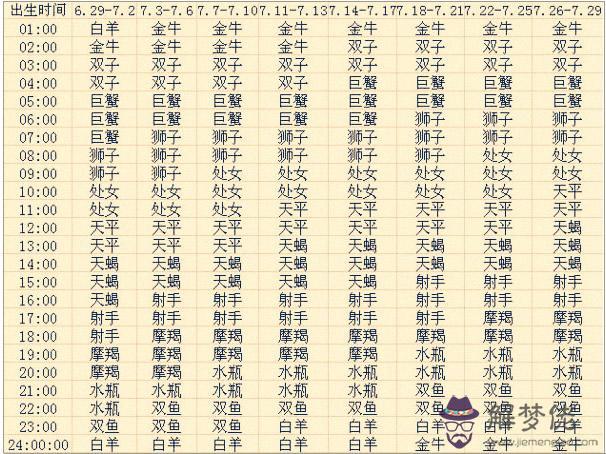 出生时间 6.29-7.2 7.3-7.6 7.7-7.10 7.11-7.13 7.14-7.17 7.18-7.21 7.22-7.25 7.26-7.29
01:00 白羊 金牛 金牛 金牛 金牛 金牛 金牛 金牛
02:00 金牛 金牛 金牛 金牛 双子 双子 双子 双子
03:00 双子 双子 双子 双子 双子 双子 双子 双子
04:00 双子 双子 双子 双子 巨蟹 巨蟹 巨蟹 巨蟹
05:00 巨蟹 巨蟹 巨蟹 巨蟹 巨蟹 巨蟹 巨蟹 巨蟹
06:00 巨蟹 巨蟹 巨蟹 巨蟹 巨蟹 狮子 狮子 狮子
07:00 巨蟹 狮子 狮子 狮子 狮子 狮子 狮子 狮子
08:00 狮子 狮子 狮子 狮子 狮子 狮子 处女 处女
09:00 狮子 狮子 处女 处女 处女 处女 处女 处女
10:00 处女 处女 处女 处女 处女 处女 处女 天平
11:00 处女 处女 处女 天平 天平 天平 天平 天平
12:00 天平 天平 天平 天平 天平 天平 天平 天蝎
13:00 天平 天平 天平 天平 天蝎 天蝎 天蝎 天蝎
14:00 天蝎 天蝎 天蝎 天蝎 天蝎 天蝎 天蝎 天蝎
15:00 天蝎 天蝎 天蝎 天蝎 天蝎 射手 射手 射手
16:00 天蝎 射手 射手 射手 射手 射手 射手 射手
17:00 射手 射手 射手 射手 射手 射手 摩羯 摩羯
18:00 射手 摩羯 摩羯 摩羯 摩羯 摩羯 摩羯 摩羯
19:00 摩羯 摩羯 摩羯 摩羯 摩羯 水瓶 水瓶 水瓶
20:00 摩羯 摩羯 水瓶 水瓶 水瓶 水瓶 水瓶 水瓶
21:00 水瓶 水瓶 水瓶 水瓶 水瓶 双鱼 双鱼 双鱼
22:00 水瓶 双鱼 双鱼 双鱼 双鱼 双鱼
23:00 双鱼 双鱼 双鱼 白羊 白羊 白羊 白羊
24:00:00 白羊 白羊 白羊 白羊 白羊 金牛 金牛 金牛
解梦佬
www.jiemeng